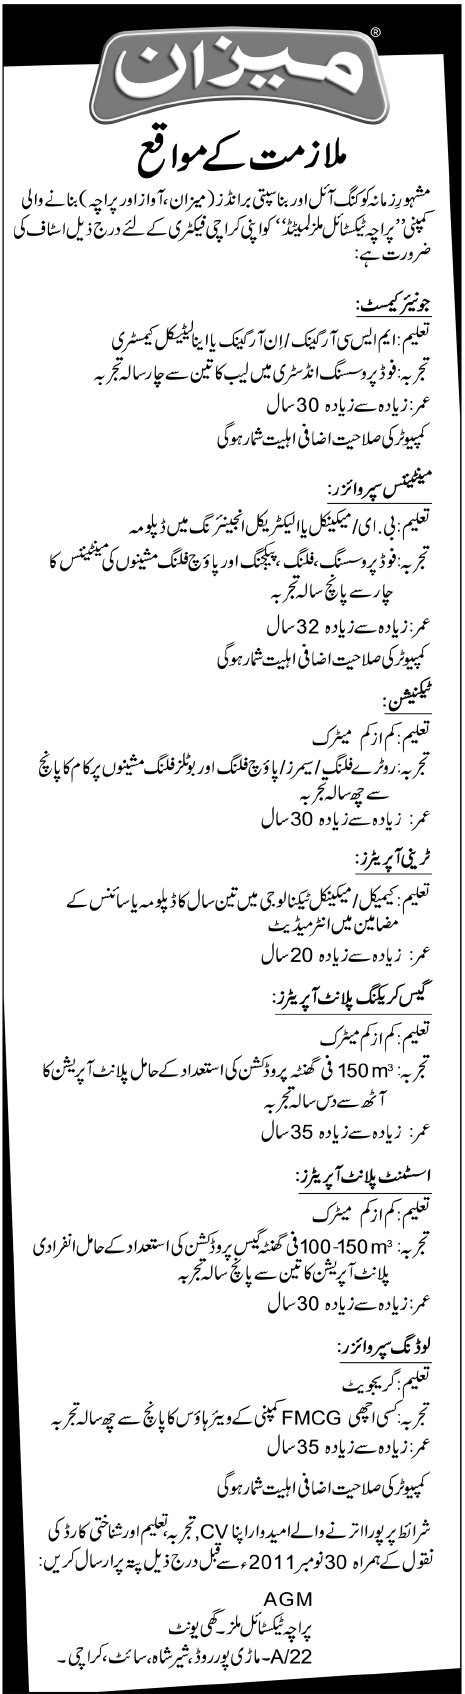 میزان®
ملازمت کے مواقع
مشہورِ زمانہ کوکنگ آئل اور بناسپتی برانڈز (میزان، آواز اور پراچہ) بنانے والی
کمپنی ”پراچہ ٹیکسٹائل ملز لمیٹڈ“ کو اپنی کراچی فیکٹری کے لئے درج ذیل اسٹاف کی
ضرورت ہے:
جونیئر کیمسٹ:
تعلیم: ایم ایس سی آرگینک/ اِن آرگینک یا اینالیٹیکل کیمسٹری
تجربہ: فوڈ پروسسنگ انڈسٹری میں لیب کا تین سے چار سالہ تجربہ
عمر: زیادہ سے زیادہ 30 سال
کمپیوٹر کی صلاحیت اضافی اہلیت شمار ہوگی
مینٹیننس سپروائزر:
تعلیم: بی۔ای/ میکینکل یا الیکٹریکل انجینئرنگ میں ڈپلومہ
تجربہ: فوڈ پروسسنگ، فلنگ، پیکجنگ اور پاؤچ فلنگ مشینوں کی مینٹیننس کا
چار سے پانچ سالہ تجربہ
عمر: زیادہ سے زیادہ 32 سال
کمپیوٹر کی صلاحیت اضافی اہلیت شمار ہوگی
ٹیکنیشن:
تعلیم: کم از کم میٹرک
تجربہ: روٹرے فلنگ/ سیمرز/ پاؤچ فلنگ اور بوٹلز فلنگ مشینوں پر کام کا پانچ
سے چھ سالہ تجربہ
عمر: زیادہ سے زیادہ 30 سال
ٹرینی آپریٹرز:
تعلیم: کیمیکل/ میکینکل ٹیکنالوجی میں تین سال کا ڈپلومہ یا سائنس کے
مضامین میں انٹرمیڈیٹ
عمر: زیادہ سے زیادہ 20 سال
گیس کریکنگ پلانٹ آپریٹرز:
تعلیم: کم از کم میٹرک
تجربہ: 150 m³ فی گھنٹہ پروڈکشن کی استعداد کے حامل پلانٹ آپریشن کا
آٹھ سے دس سالہ تجربہ
عمر: زیادہ سے زیادہ 35 سال
اسسٹنٹ پلانٹ آپریٹرز:
تعلیم: کم از کم میٹرک
تجربہ: 100-150 m³ فی گھنٹہ گیس پروڈکشن کی استعداد کے حامل انفرادی
پلانٹ آپریشن کا تین سے پانچ سالہ تجربہ
عمر: زیادہ سے زیادہ 30 سال
لوڈنگ سپروائزر:
تعلیم: گریجویٹ
تجربہ: کسی اچھی FMCG کمپنی کے ویئر ہاؤس کا پانچ سے چھ سالہ تجربہ
عمر: زیادہ سے زیادہ 35 سال
کمپیوٹر کی صلاحیت اضافی اہلیت شمار ہوگی
شرائط پر پورا اترنے والے امیدوار اپنا CV، تجربہ، تعلیم اور شناختی کارڈ کی
نقول کے ہمراہ 30 نومبر 2011ء سے قبل درج ذیل پتہ پر ارسال کریں:
AGM
پراچہ ٹیکسٹائل ملز۔ گھی یونٹ
A/22۔ ماڑی پور روڈ، شیر شاہ، سائٹ، کراچی۔